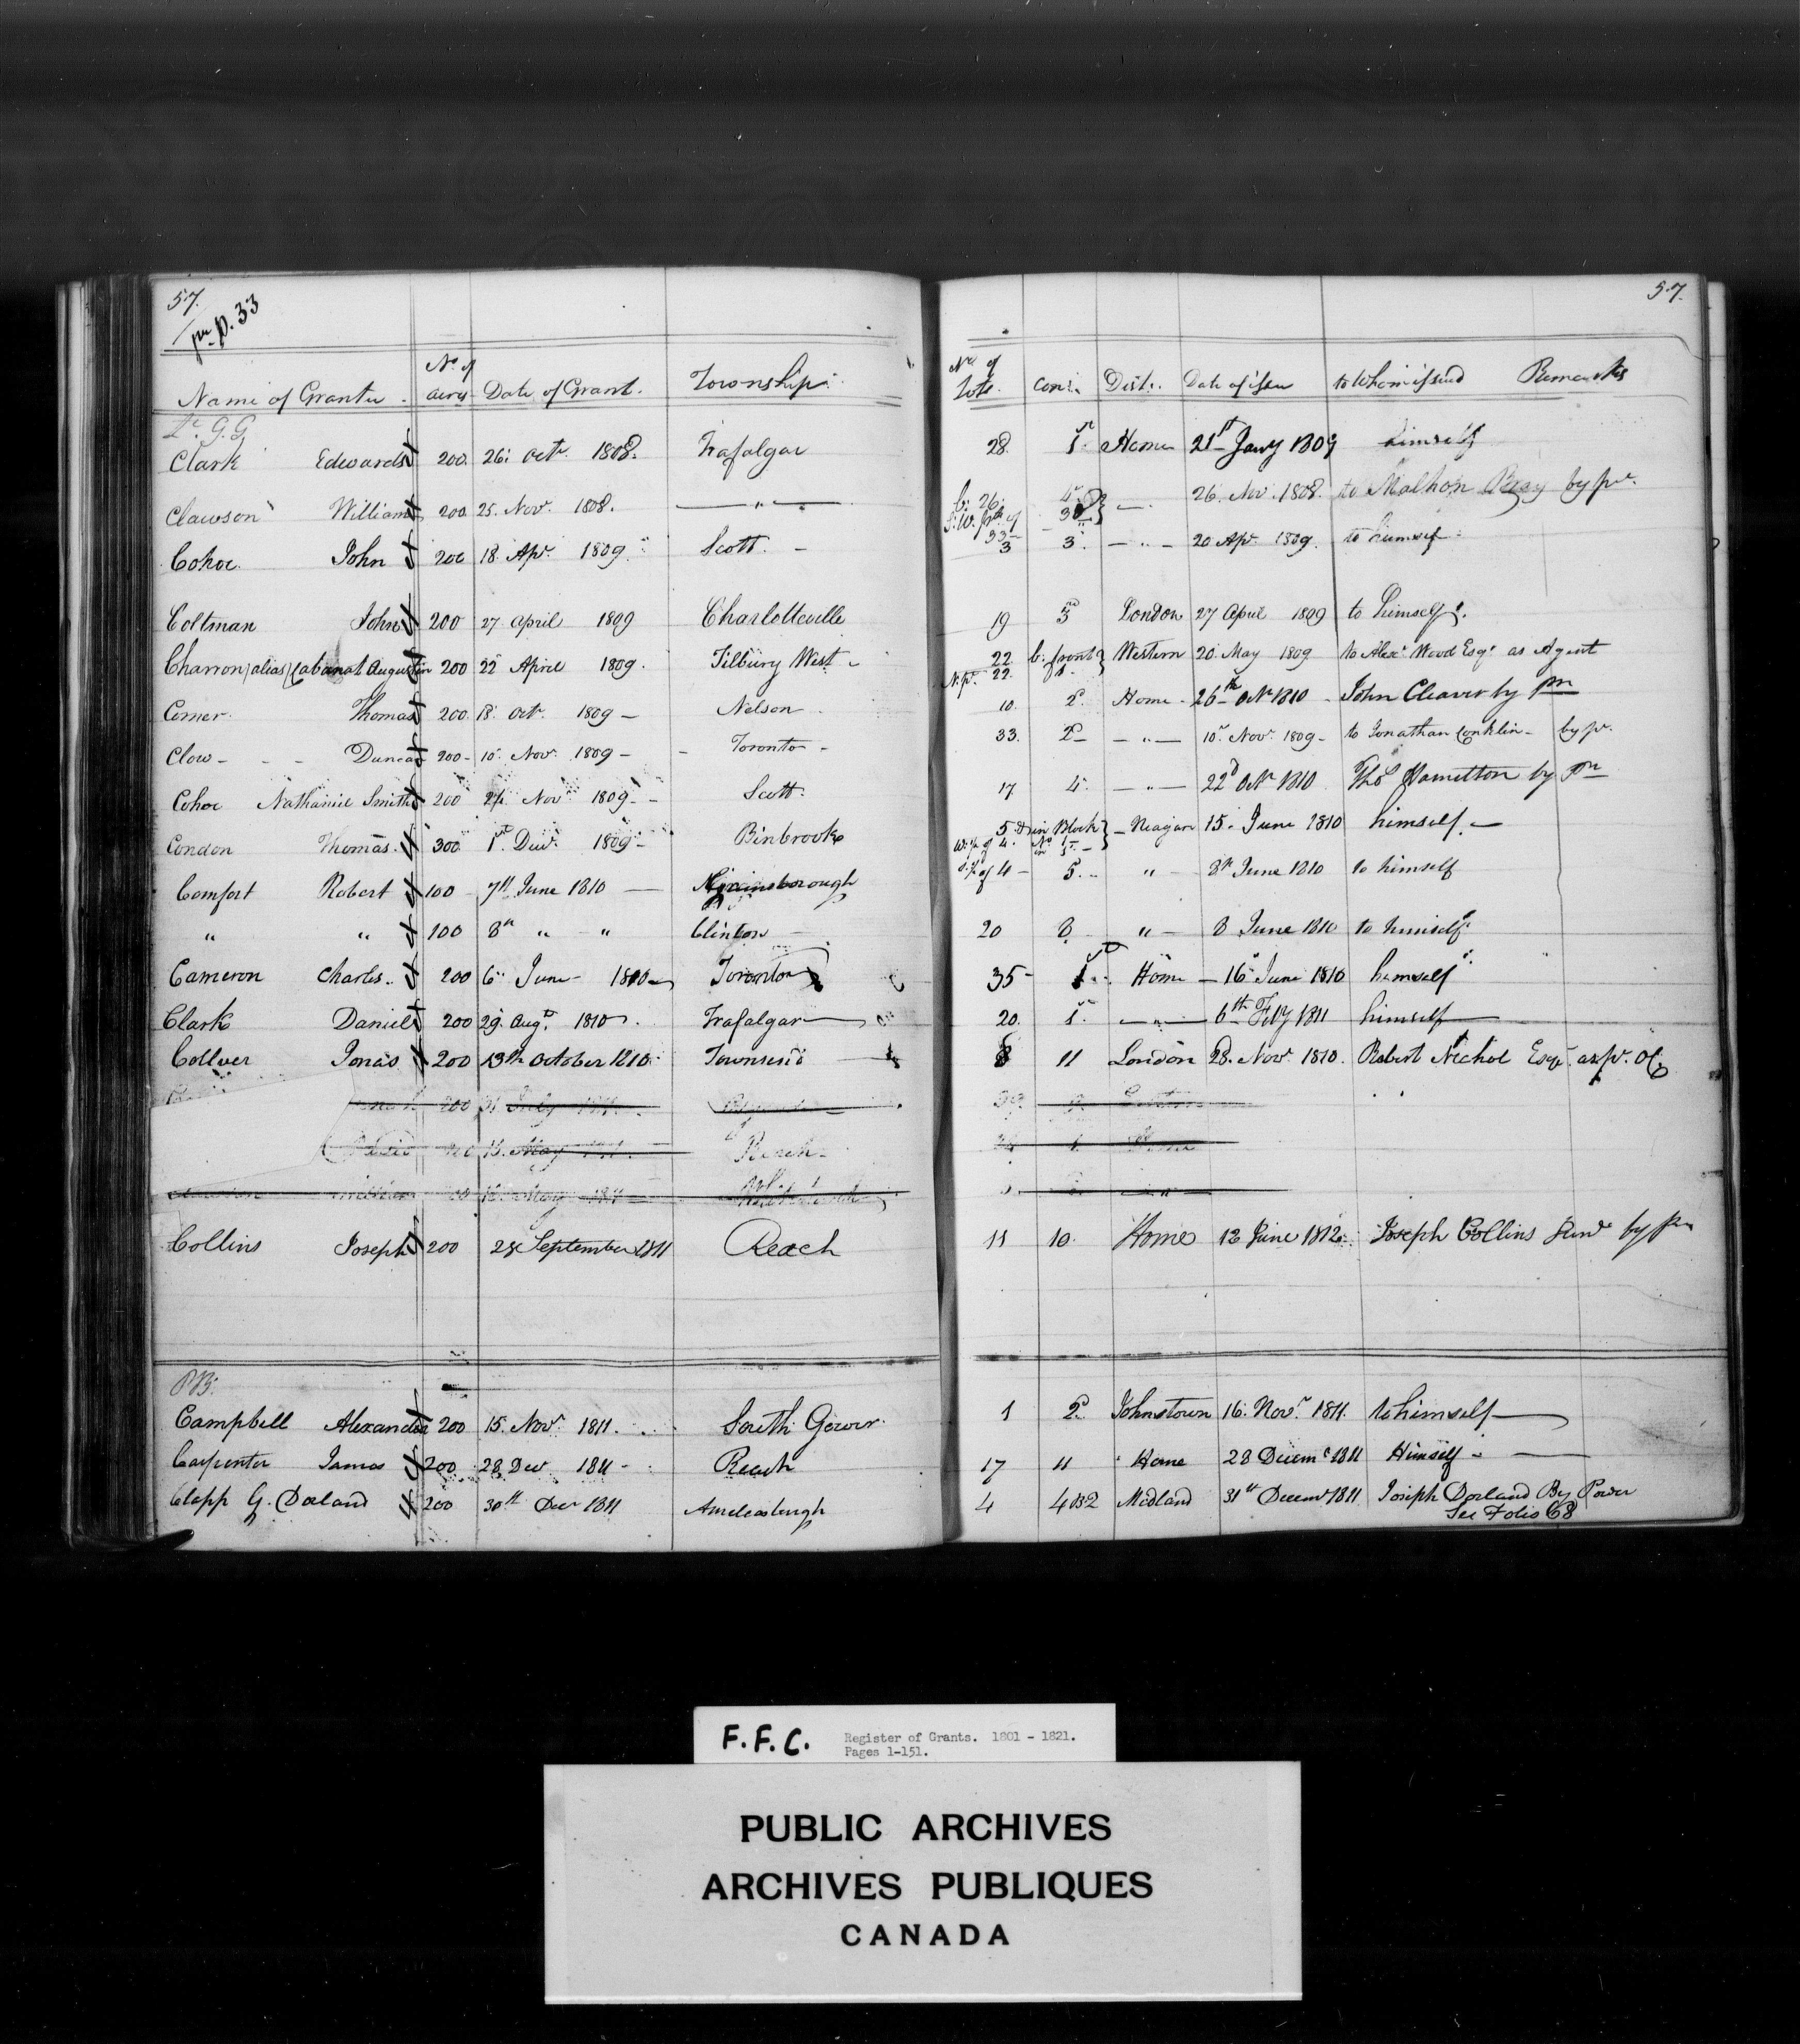 57.
pr p. 33
57.
No of acres
Name of Grantee. Date of Grant. Township.
No of Lots. Conn. Distt. Date of issue to Whom issued Remarks
Lt. G. G
Clark Edward 200. 26: Octr. 1808. Trafalgar 28. 1st Home 21st Jany 1809 himself
Clawson William 200 25. Nov. 1808. — " — 26 Nov. 1808. to Malhon by pr.
Cohoe John 200 18. Apr. 1809 Scott. — 3 3. — " — 20 Apr. 1809. to himself
Coltman John 200 27 April 1809 Charlotteville 19 3 London 27 April 1809 to himself.
Charron (alias) Cabanat Augustin 200 22 April 1809. Tilbury West 22 b. front Western 20 May 1809 to Alexr Wood Esqr as Agent
N. pt. 22.
Comer. Thomas 200. 18. Octr. 1809 — Nelson 10. 2. Home 26th Octr 1810 John Cleaver by pr
Clow — Duncan 200 — 10. Nov. 1809 — Toronto — 33. 2 — " — 10. Novr. 1809 — to Jonathan Conklin — by pr.
Cohoe Nathaniel Smith 200 24 Nov 1809 — Scott. 17 4. — " — 22d Octr 1810 Thos Hamilton by pr
Condon Thomas. 300. 1st Decr. 1809 — Binbrook 5 in Block Niagara 15. June 1810 himself. —
Comfort Robert 100 7th June 1810 — Gainsborough of 4 — 5. " — 8th June 1810 to himself
" " 100 8th " " Clinton 20 8 " — 8 June 1810 to himself
Cameron Charles.. 200 6. June — 1810 — Toronto 35 — 1 Home — 16 June 1810 himself
Clark Daniel 200 29. Augt. 1810. Trafalgar — 20. 1. — " — 6th Feby 1811 himself —
Collver Jonas 200 13th October 1810. Townsend — 8 11 London 28. Novr. 1810. Robert Nichol Esqr. as pr.
200 31 July
15. May Reach —
May
Collins Joseph 200 28 September 1811 Reach 11 10. Home 13 June 1812. Joseph Collins Junr by pr
PB.
Campbell Alexander 200 15. Novr 1811. South Gower. 1 2. Johnstown 16. Novr. 1811. to himself —
Carpenter James 200 28 Decr 1811 — Reach 17 11 Home 28 Decemr 1811 Himself —
Clapp G. Dorland 200 30th Decr 1811 Ameliasburgh 4 4 Midland 31st Decemr 1811 Joseph Dorland By Power
See Folio 68
F.F.C. Register of Grants. 1801 - 1821.
Pages 1-151.
PUBLIC ARCHIVES
ARCHIVES PUBLIQUES
CANADA